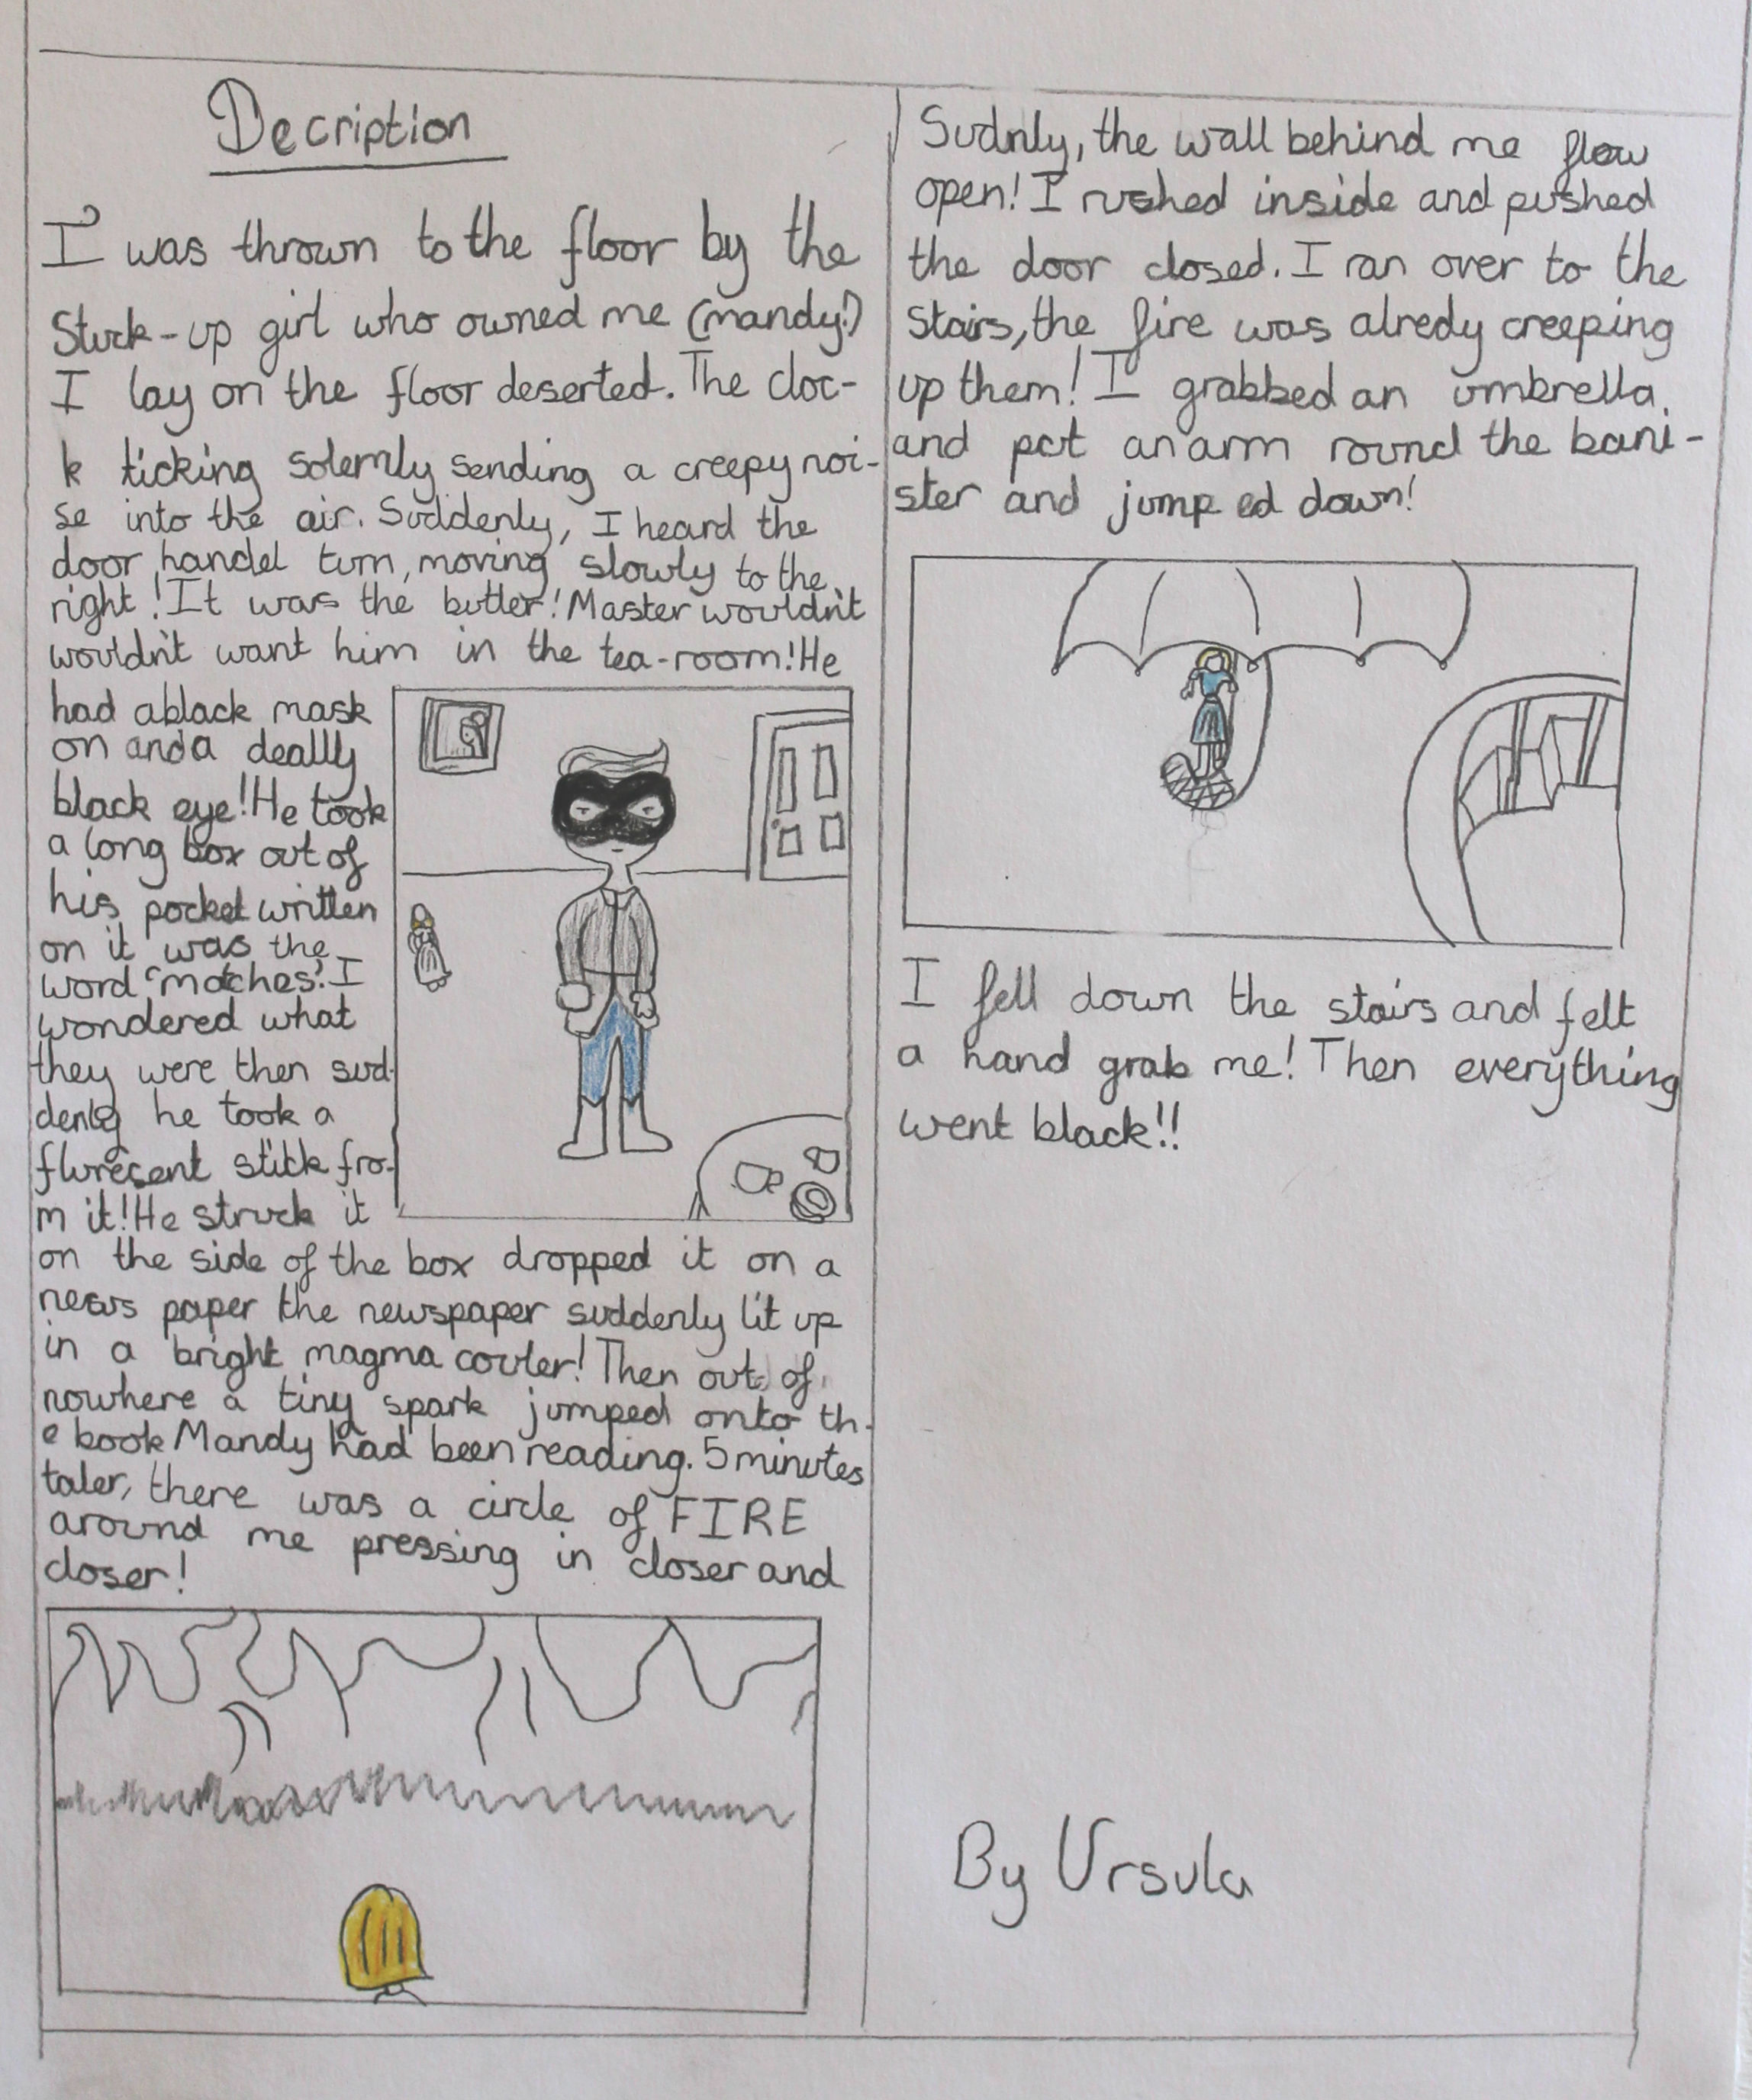 Decription
I was thrown to the floor by the
Stuck-up girl who owned me (mandy!)
I lay on the floor deserted. The cloc-
k ticking solemly sending a creepy noi-
se into the air. Suddenly, I heard the
door handel turn, moving slowly to the
right! It was the butler! Master wouldn't
wouldn't want him in the tea-room! He
had a black mask
on and a deally
black eye! He took
a long box out of
his pocket written
on it was the
word 'matches'. I
wondered what
they were then sud-
denly he took a
flurescent stick fro-
m it! He struck it
on the side of the box dropped it on a
news paper the newspaper suddenly lit up
in a bright magma couler! Then out of
nowhere a tiny spark jumped onto th-
e book Mandy had been reading. 5 minutes
taler, there was a circle of FIRE
around me pressing in closer and
closer!
Sudnly, the wall behind me flew
open! I rushed inside and pushed
the door closed. I ran over to the
stairs, the fire was alredy creeping
up them! I grabbed an umbrella
and put an arm round the bani-
ster and jumped down!
I fell down the stairs and felt
a hand grab me! Then everything
went black!!
By Ursula